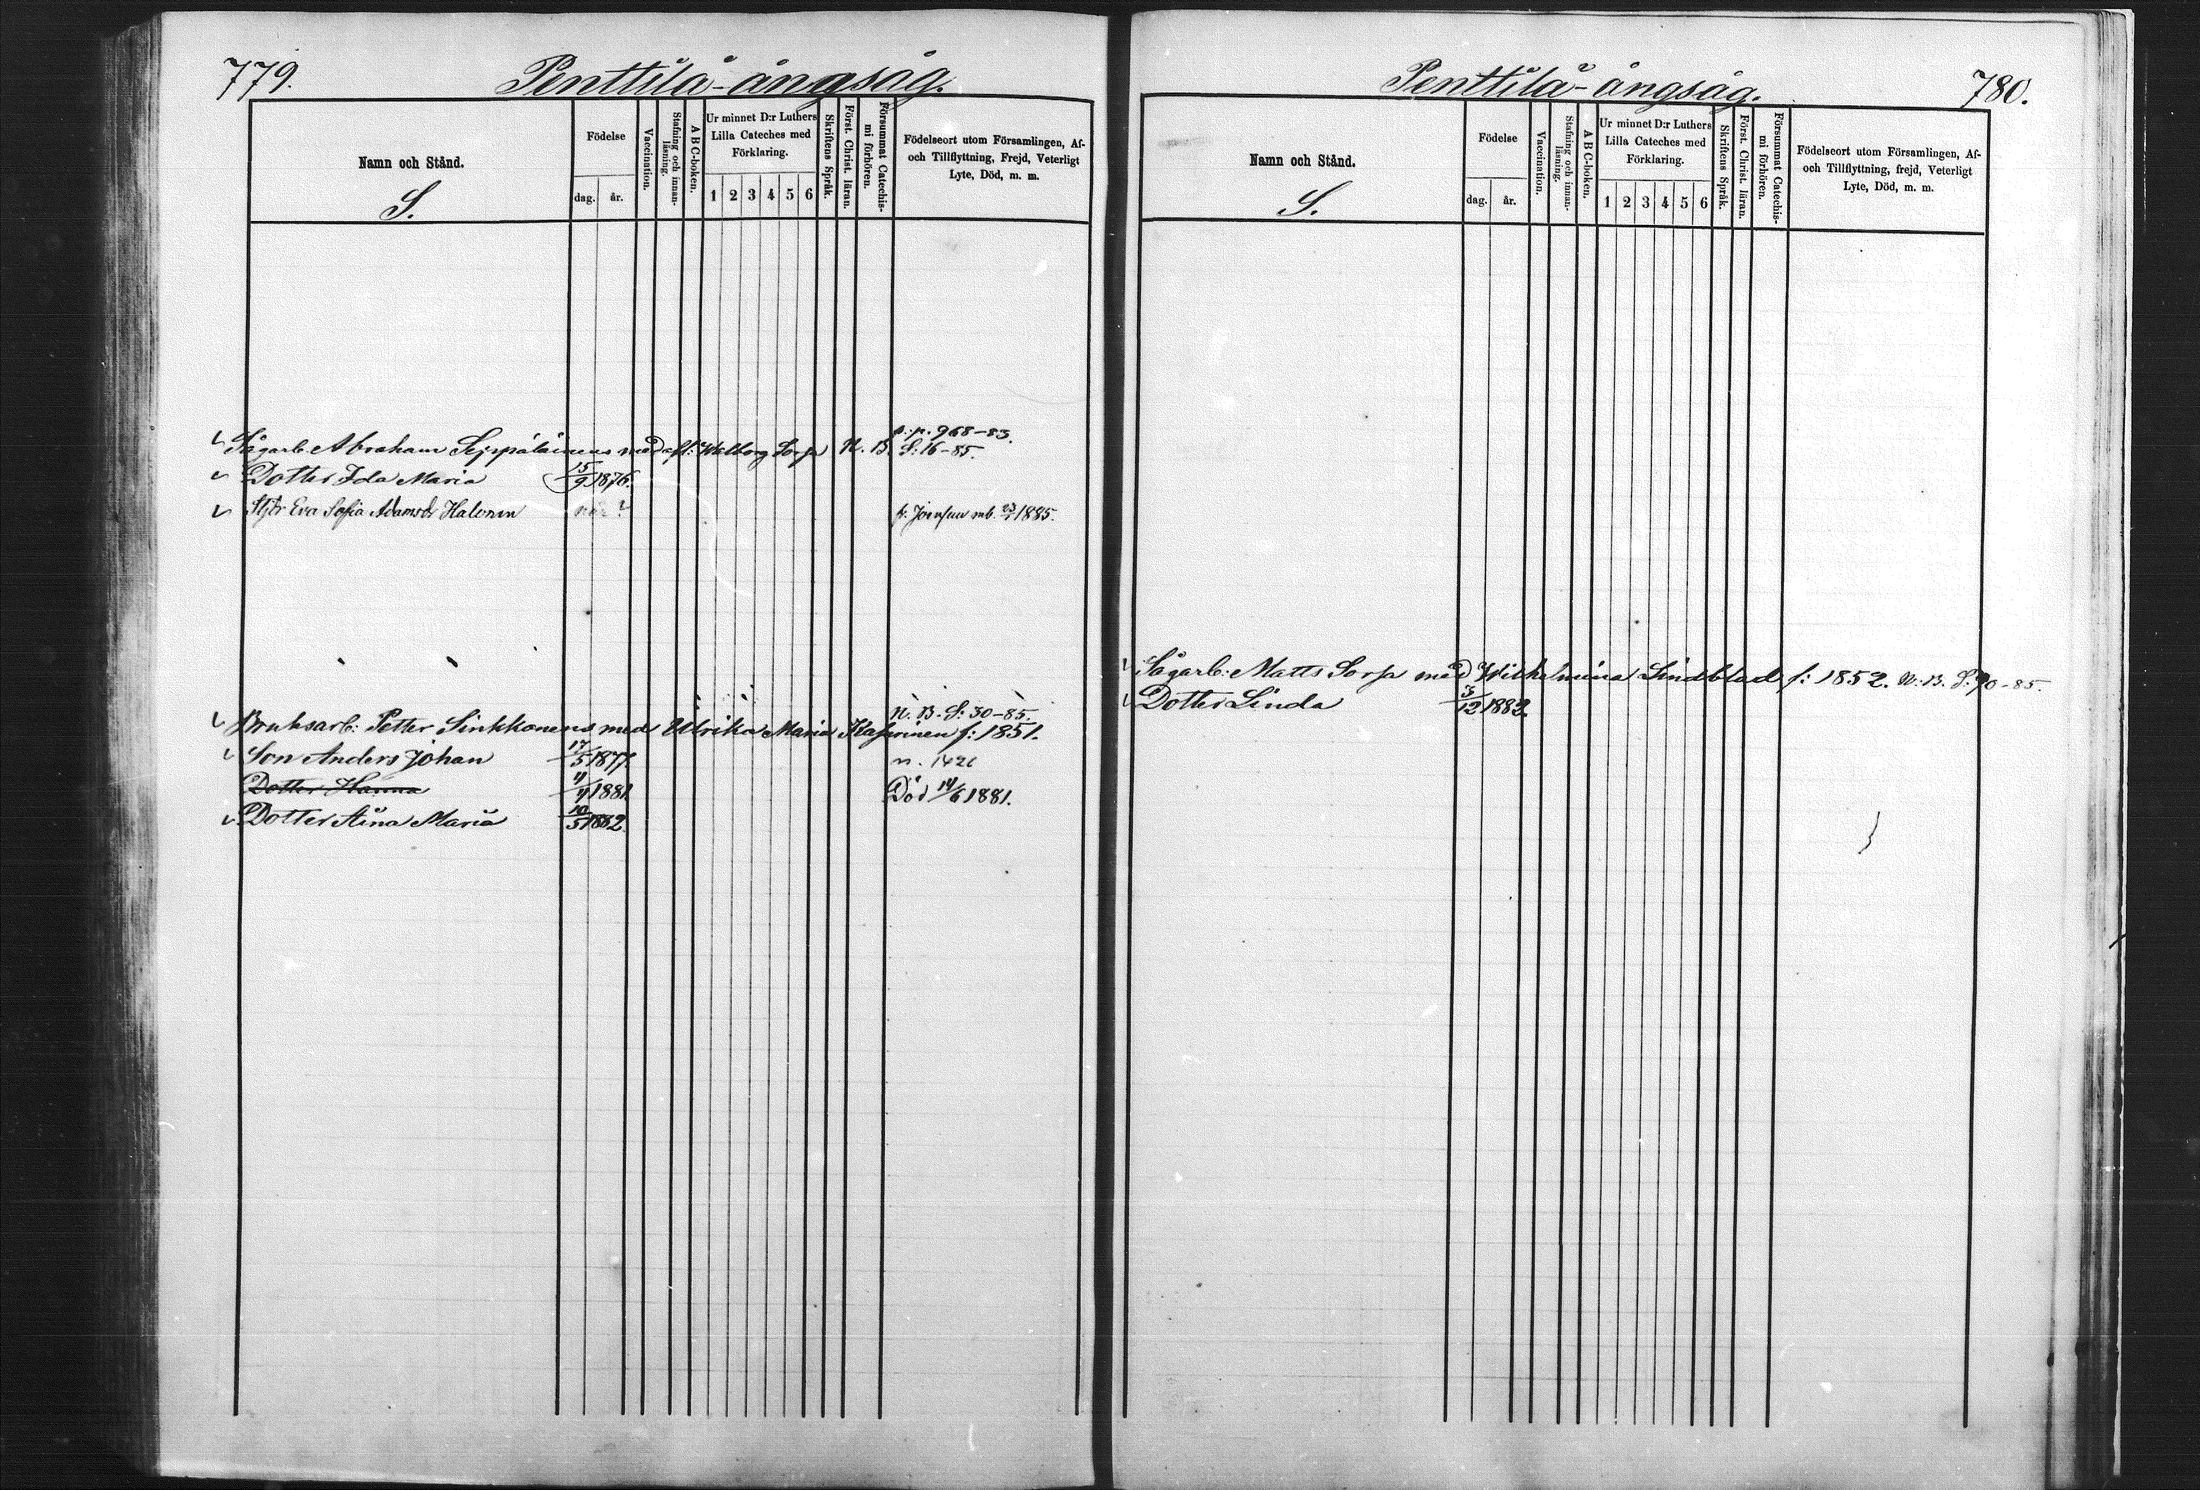 779.
Penttilä-ångsåg.
Namn och Stånd.
S.
Födelse
dag.
år.
Vaccination.
Stafning och innan-
läsning.
ABC-boken.
Ur minnet D:r Luthers
Lilla Cateches med
Förklaring.
1 2 3 4 5 6
Skriftens Språk.
Först. Christ. läran.
Försummat Catechis-
mi förhören.
Födelseort utom Församlingen, Af-
och Tillflyttning, Frejd, Veterligt
Lyte, Död, m. m.
p. 968-83.
Sågarb. Abraham Seppäläinens med Walborg Sorsa N. B. S: 16-85.
Dotter Ida Maria 15/9 1876.
Eva Sofia Adamsdr Halonen 1885.
N. B. S: 30-85.
Bruksarb: Petter Sinkkonens med Ulrika Maria f: 1851.
Son Anders Johan 17/5 1877.
Dotter Hanna 1881. Död 14/6 1881.
Dotter Aina Maria 10/5 1882.
Penttilä-ångsåg.
780.
Namn och Stånd.
S.
Födelse
dag.
år.
Vaccination.
Stafning och innan-
läsning.
ABC-boken.
Ur minnet D:r Luthers
Lilla Cateches med
Förklaring.
1 2 3 4 5 6
Skriftens Språk.
Först. Christ. läran.
Försummat Catechis-
mi förhören.
Födelseort utom Församlingen, Af-
och Tillflyttning, frejd, Veterligt
Lyte, Död, m. m.
Sågarb: Matts Sorsa med Wilhelmina Lindblad f: 1852. N. B. S: 90-85.
Dotter Linda 3/12 1882.